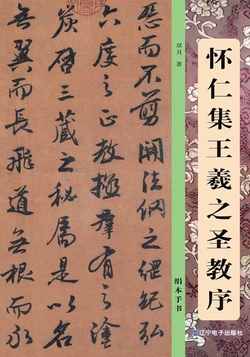 怀仁集王羲之圣教序
双月 著
绢本手书
辽宁电子出版社
惡而不剪開法網之綱紀弘
六度之正教拯群有之塗
炭啓三藏之秘扃是以名
無翼而長飛道無根而永